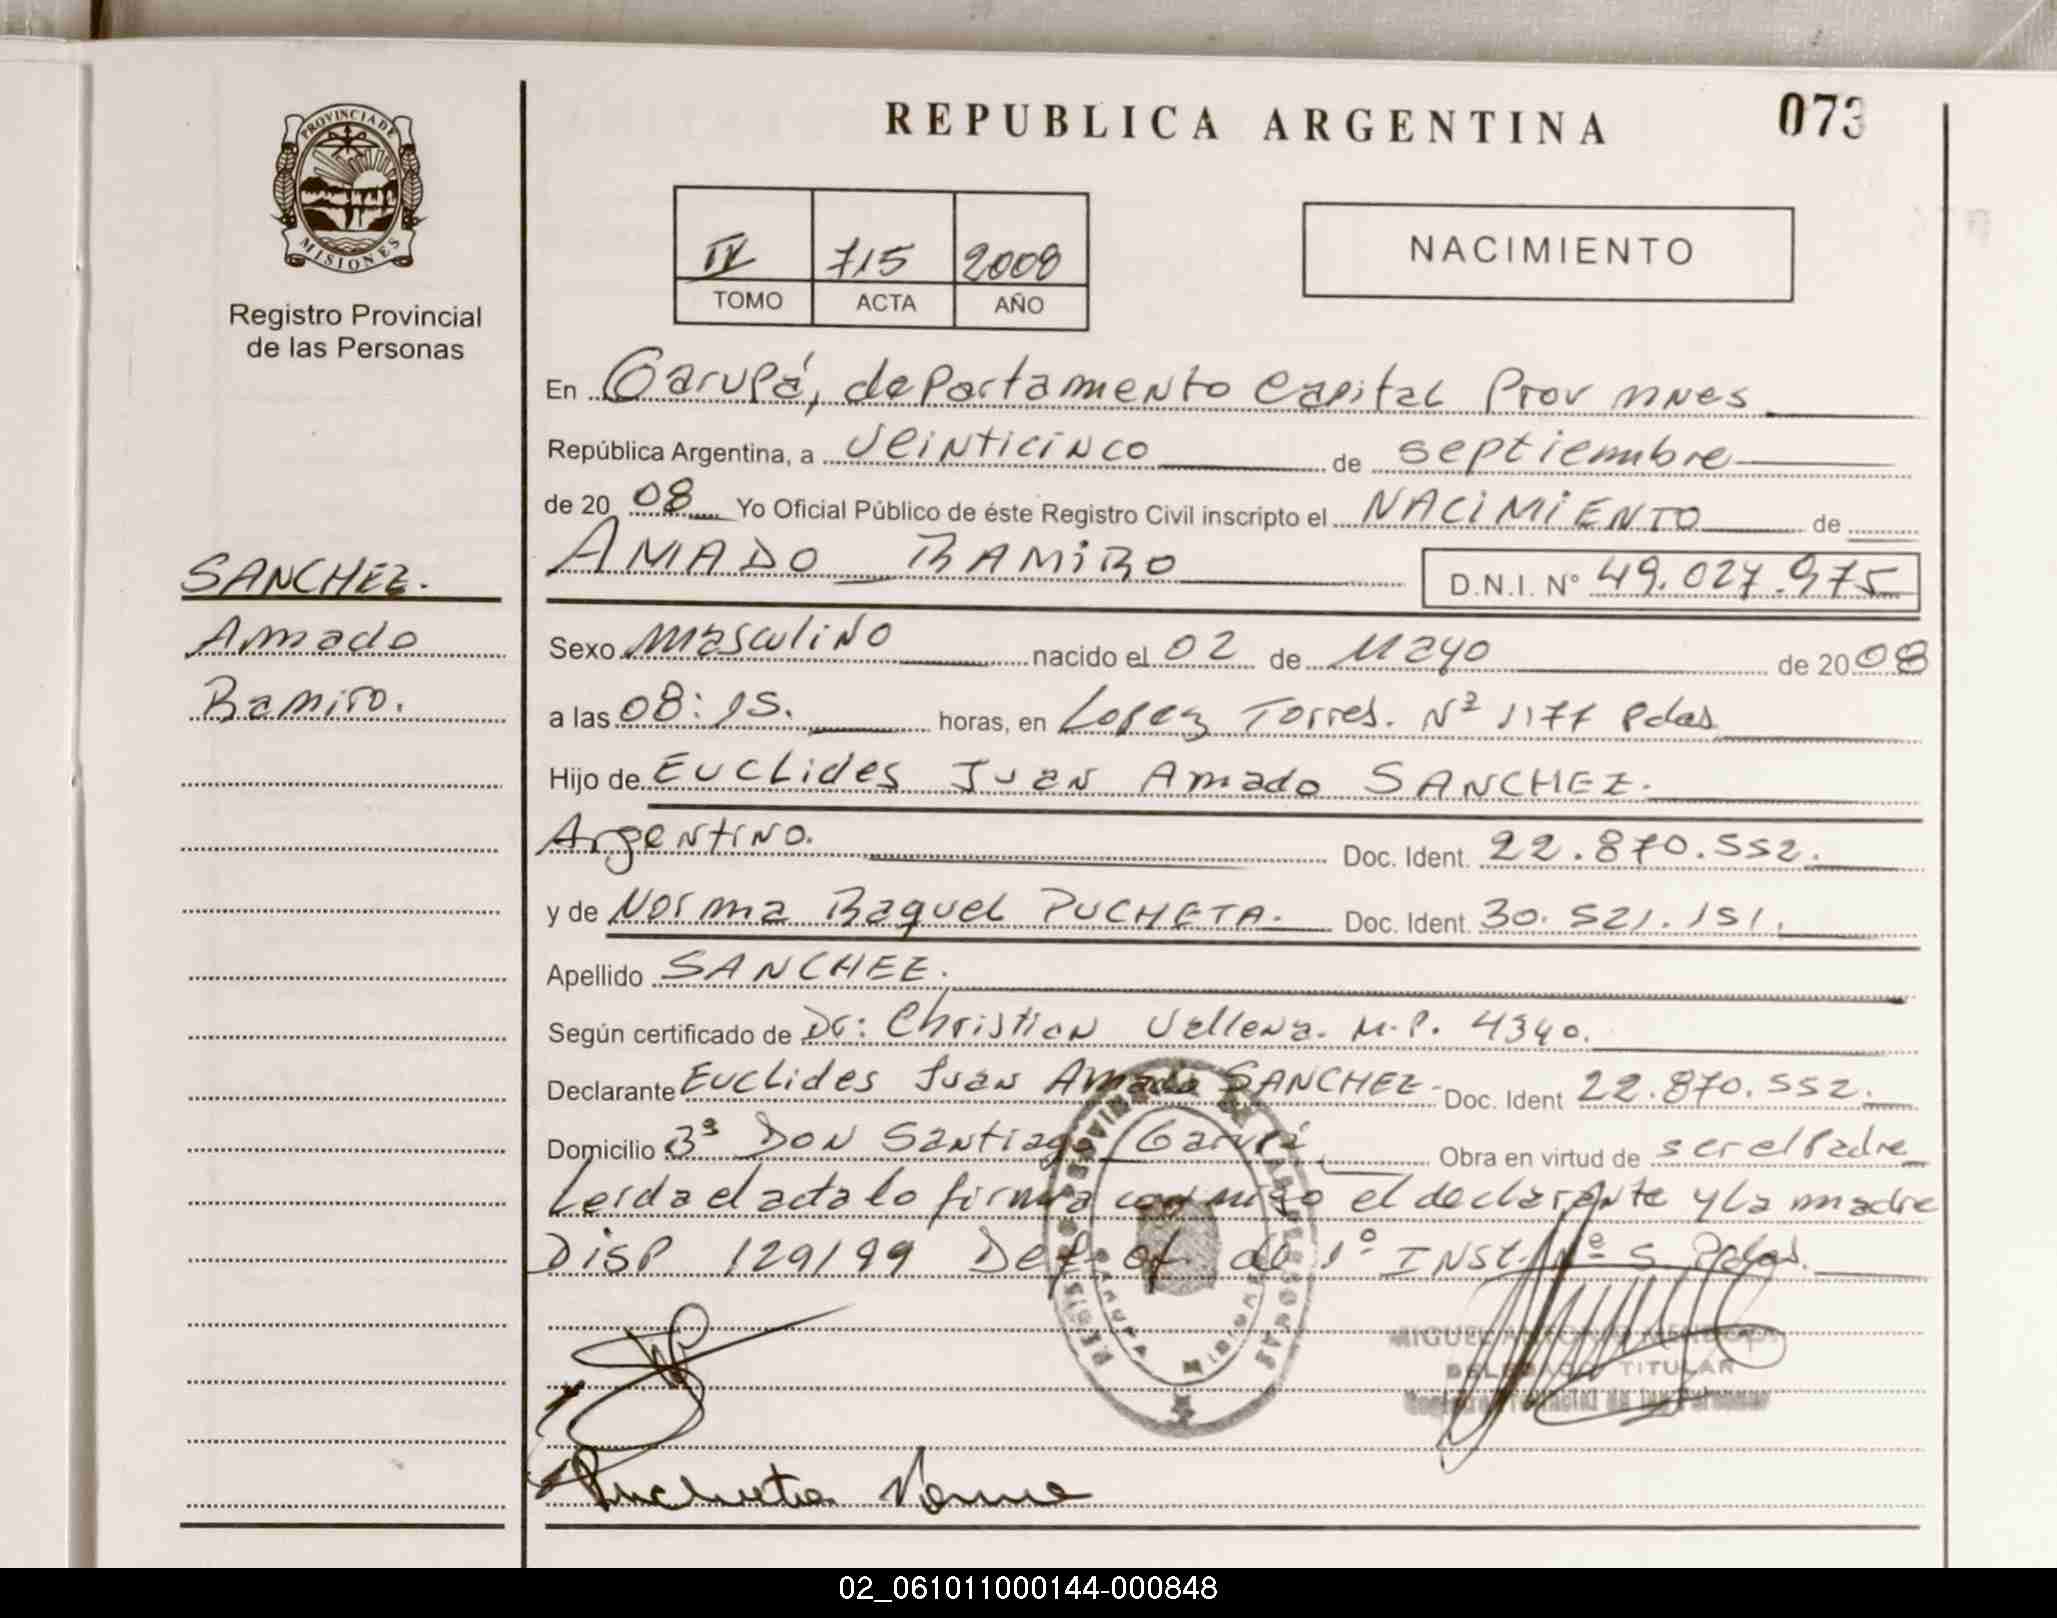 REPUBLICA ARGENTINA
073
PROVINCIA DE
MISIONES
Registro Provincial
de las Personas
IV 715 2008
TOMO ACTA AÑO
NACIMIENTO
En Garupá, departamento Capital Prov mnes
República Argentina, a veinticinco de septiembre
de 2008 Yo Oficial Público de éste Registro Civil inscripto el NACIMIENTO de
AMADO RAMIRO D.N.I. Nº 49.027.975
SANCHEZ.
Amado
Ramiro.
Sexo Masculino nacido el 02 de Mayo de 2008
a las 08:15. horas, en Lopez Torres. Nº 1177 Pdas
Hijo de Euclides Juan Amado SANCHEZ.
Argentino. Doc. Ident. 22.870.552.
y de Norma Raquel PUCHETA. Doc. Ident. 30.521.151.
Apellido SANCHEZ.
Según certificado de Dr: Christian Vallena. M.P. 4340.
Declarante Euclides Juan Amado SANCHEZ Doc. Ident 22.870.552.
Domicilio Bº Don Santiago Garupá Obra en virtud de ser el Padre
Leida el acta lo firma conmigo el declarante y la madre
DISP 129/99 Def of de 1º INST. Nº 5 Pdas.
MIGUEL
DELEGADO TITULAR
Registro Provincial de las Personas
Pucheta Norma
02_061011000144-000848